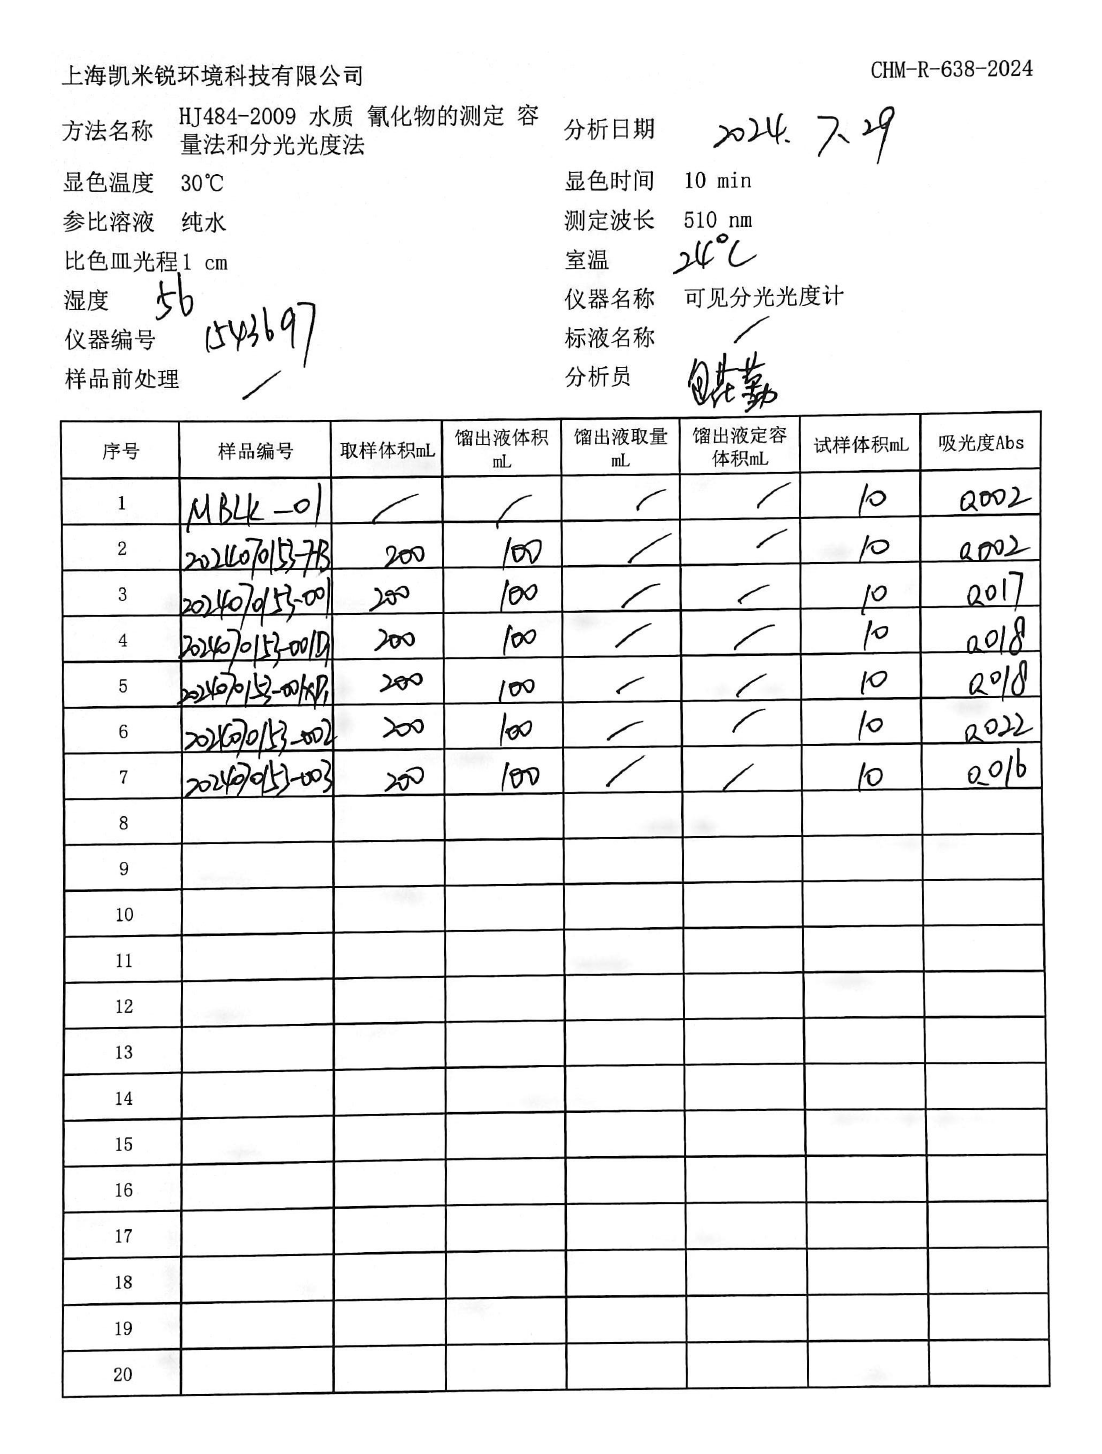 上海凯米锐环境科技有限公司 CHM-R-638-2024
方法名称 HJ484-2009 水质 氰化物的测定 容量法和分光光度法 分析日期 2024.7.29
显色温度 30℃ 显色时间 10 min
参比溶液 纯水 测定波长 510 nm
比色皿光程1 cm 室温 24℃
湿度 56 仪器名称 可见分光光度计
仪器编号 1543697 标液名称 /
样品前处理 / 分析员
序号 样品编号 取样体积mL 馏出液体积mL 馏出液取量mL 馏出液定容体积mL 试样体积mL 吸光度Abs
1 MBLK-01 / / / / 10 0.002
2 2024070153-FB 200 100 / / 10 0.002
3 2024070153-001 200 100 / / 10 0.017
4 2024070153-001D1 200 100 / / 10 0.018
5 200 100 / / 10 0.018
6 2024070153-002 200 100 / / 10 0.022
7 2024070153-003 200 100 / / 10 0.016
8
9
10
11
12
13
14
15
16
17
18
19
20